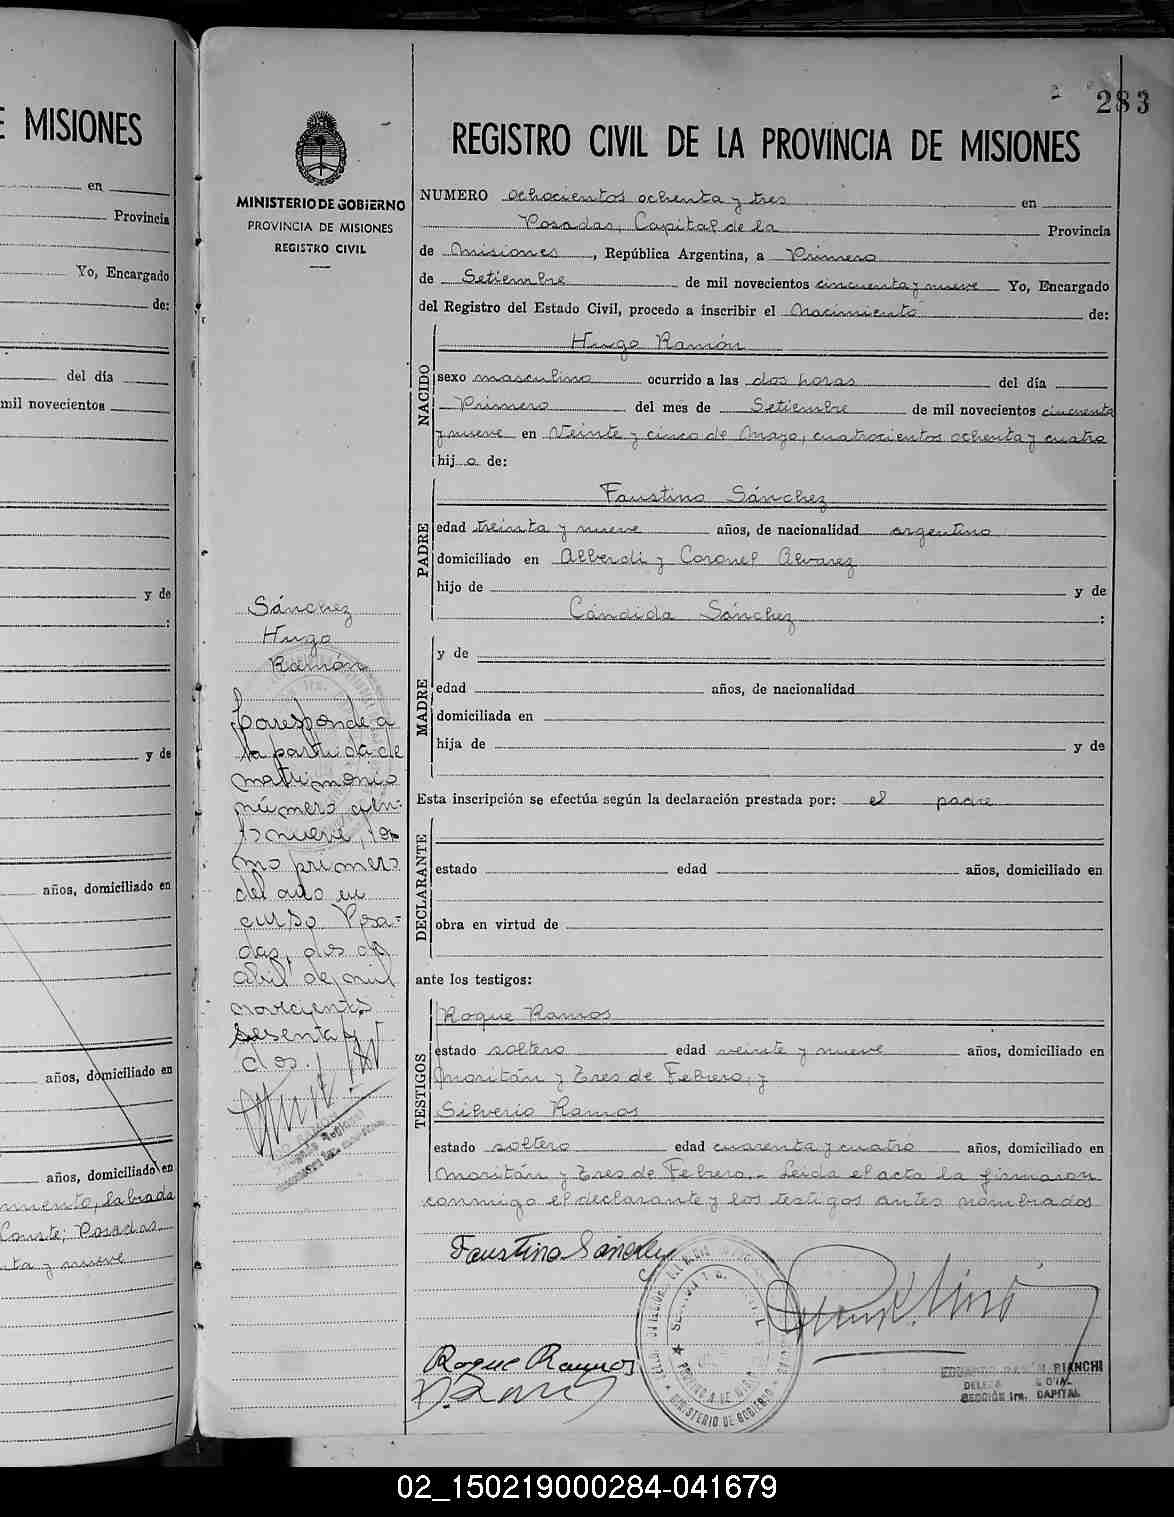 E MISIONES
en
Provincia
Yo, Encargado
de:
del día
mil novecientos
y de
:
y de
años, domiciliado en
años, domiciliado en
años, domiciliado en
labrada
Conste; Posadas
y nueve
283
MINISTERIO DE GOBIERNO
PROVINCIA DE MISIONES
REGISTRO CIVIL
Sánchez
Hugo
Ramón
Coresponde a
la partida de
matrimonio
número cien-
to nueve, to
mo primero
del año en
curso. Posa=
das, dos de
abril de mil
novecientos
sesenta y
dos.
REGISTRO CIVIL DE LA PROVINCIA DE MISIONES
NUMERO ochocientos ochenta y tres en
Posadas, Capital de la Provincia
de Misiones, República Argentina, a Primero
de Setiembre de mil novecientos cincuenta y nueve Yo, Encargado
del Registro del Estado Civil, procedo a inscribir el Nacimiento de:
NACIDO
Hugo Ramón
sexo masculino ocurrido a las dos horas del día
Primero del mes de Setiembre de mil novecientos cincuenta
y nueve en Veinte y cinco de Mayo, cuatrocientos ochenta y cuatro
hijo de:
PADRE
Faustino Sánchez
edad treinta y nueve años, de nacionalidad argentino
domiciliado en Alberdi y Coronel Alvarez
hijo de y de
Cándida Sánchez :
MADRE
y de
edad años, de nacionalidad
domiciliada en
hija de y de
Esta inscripción se efectúa según la declaración prestada por: el padre
DECLARANTE
estado edad años, domiciliado en
obra en virtud de
ante los testigos:
TESTIGOS
Roque Ramos
estado soltero edad veinte y nueve años, domiciliado en
Moritán y Tres de Febrero, y
Silverio Ramos
estado soltero edad cuarenta y cuatro años, domiciliado en
Moritán y Tres de Febrero.- Leida el acta la firmaron
conmigo el declarante y los testigos antes nombrados
Faustino Sánchez
Roque Ramos
S. Ramos
MINISTERIO DE GOBIERNO
EDUARDO RAMÓN BIANCHI
SECCIÓN 1ra. CAPITAL
02_150219000284-041679